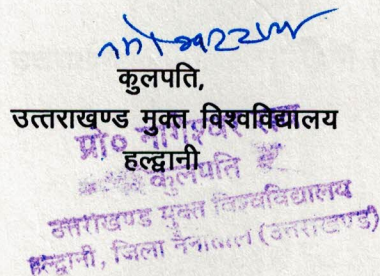 कुलपति,
उत्तराखण्ड मुक्त विश्वविद्यालय
हल्द्वानी
प्रो० नागेश्वर राव
कुलपति
उत्तराखण्ड मुक्त विश्वविद्यालय
हल्द्वानी, जिला नैनीताल (उत्तराखण्ड)